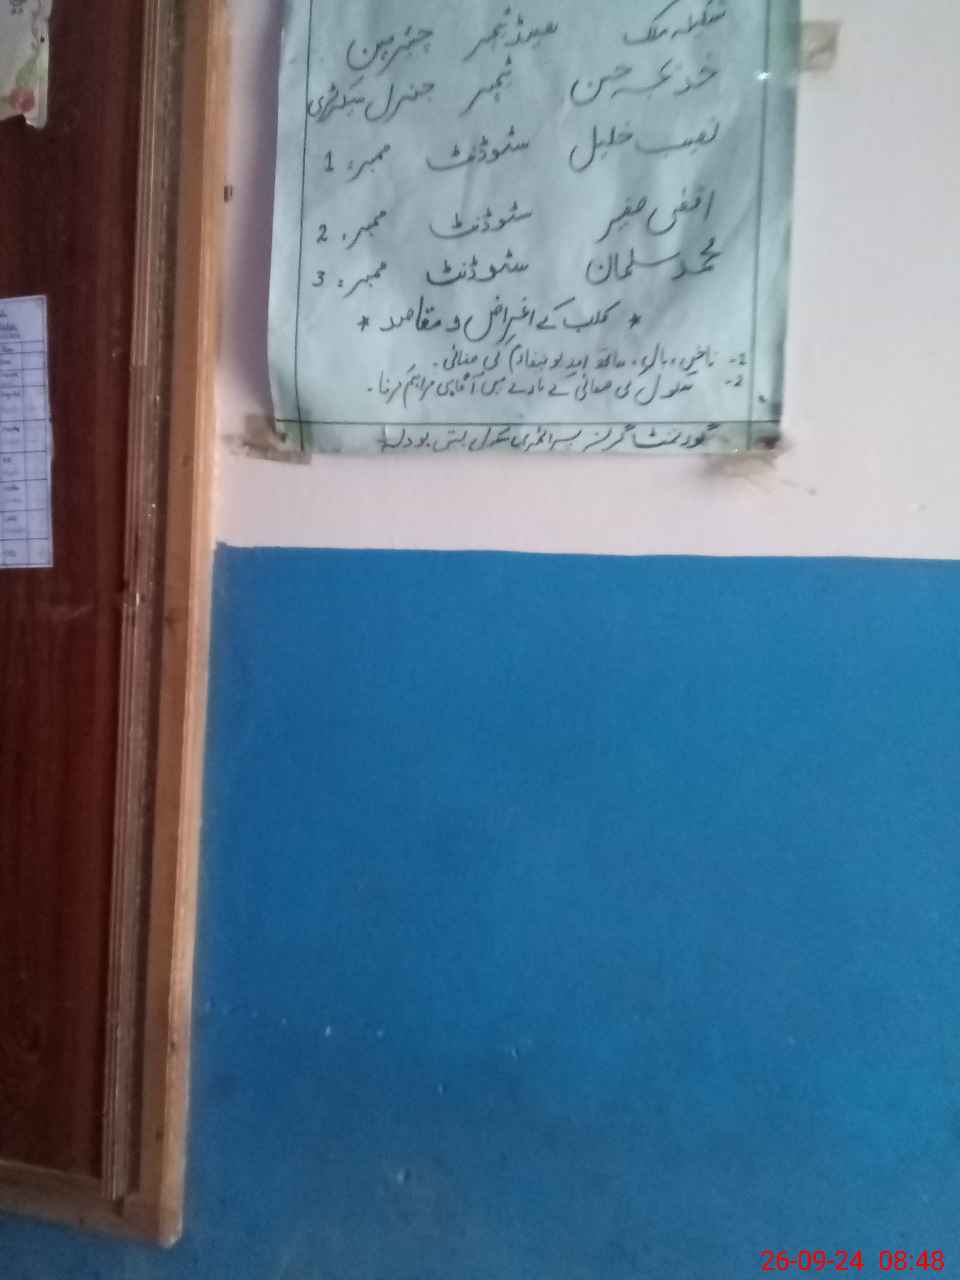 شکیلہ ملک ہیڈ ٹیچر چیئرمین
خدیجہ حسن ٹیچر جنرل سیکٹری
نصیب خلیل سٹوڈنٹ ممبر: 1
اقصٰی صغیر سٹوڈنٹ ممبر: 2
محمد سلمان سٹوڈنٹ ممبر: 3
* کلب کے اغراض و مقاصد *
1- ناخن، بال، دانت کی صفائی۔
2- سکول کی صفائی کے بارے میں آگاہی فراہم کرنا۔
گورنمنٹ گرلز پرائمری سکول بستی بودلہ
26-09-24 08:48